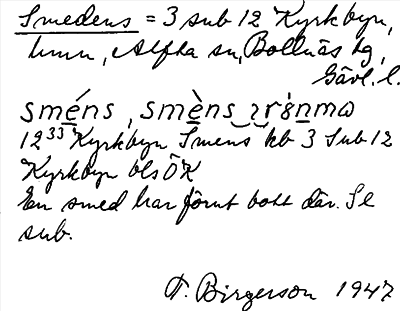 Smedens = 3 sub 12 Kyrkbyn,
hmn, Alfta sn, Bollnäs tg,
Gävl. l.
sméns, smèns
12³³ Kyrkbyn Smens kb 3 Sub 12
Kyrkbyn bls ÖK
En smed har förut bott där. Se
sub.
T. Birgerson 1947